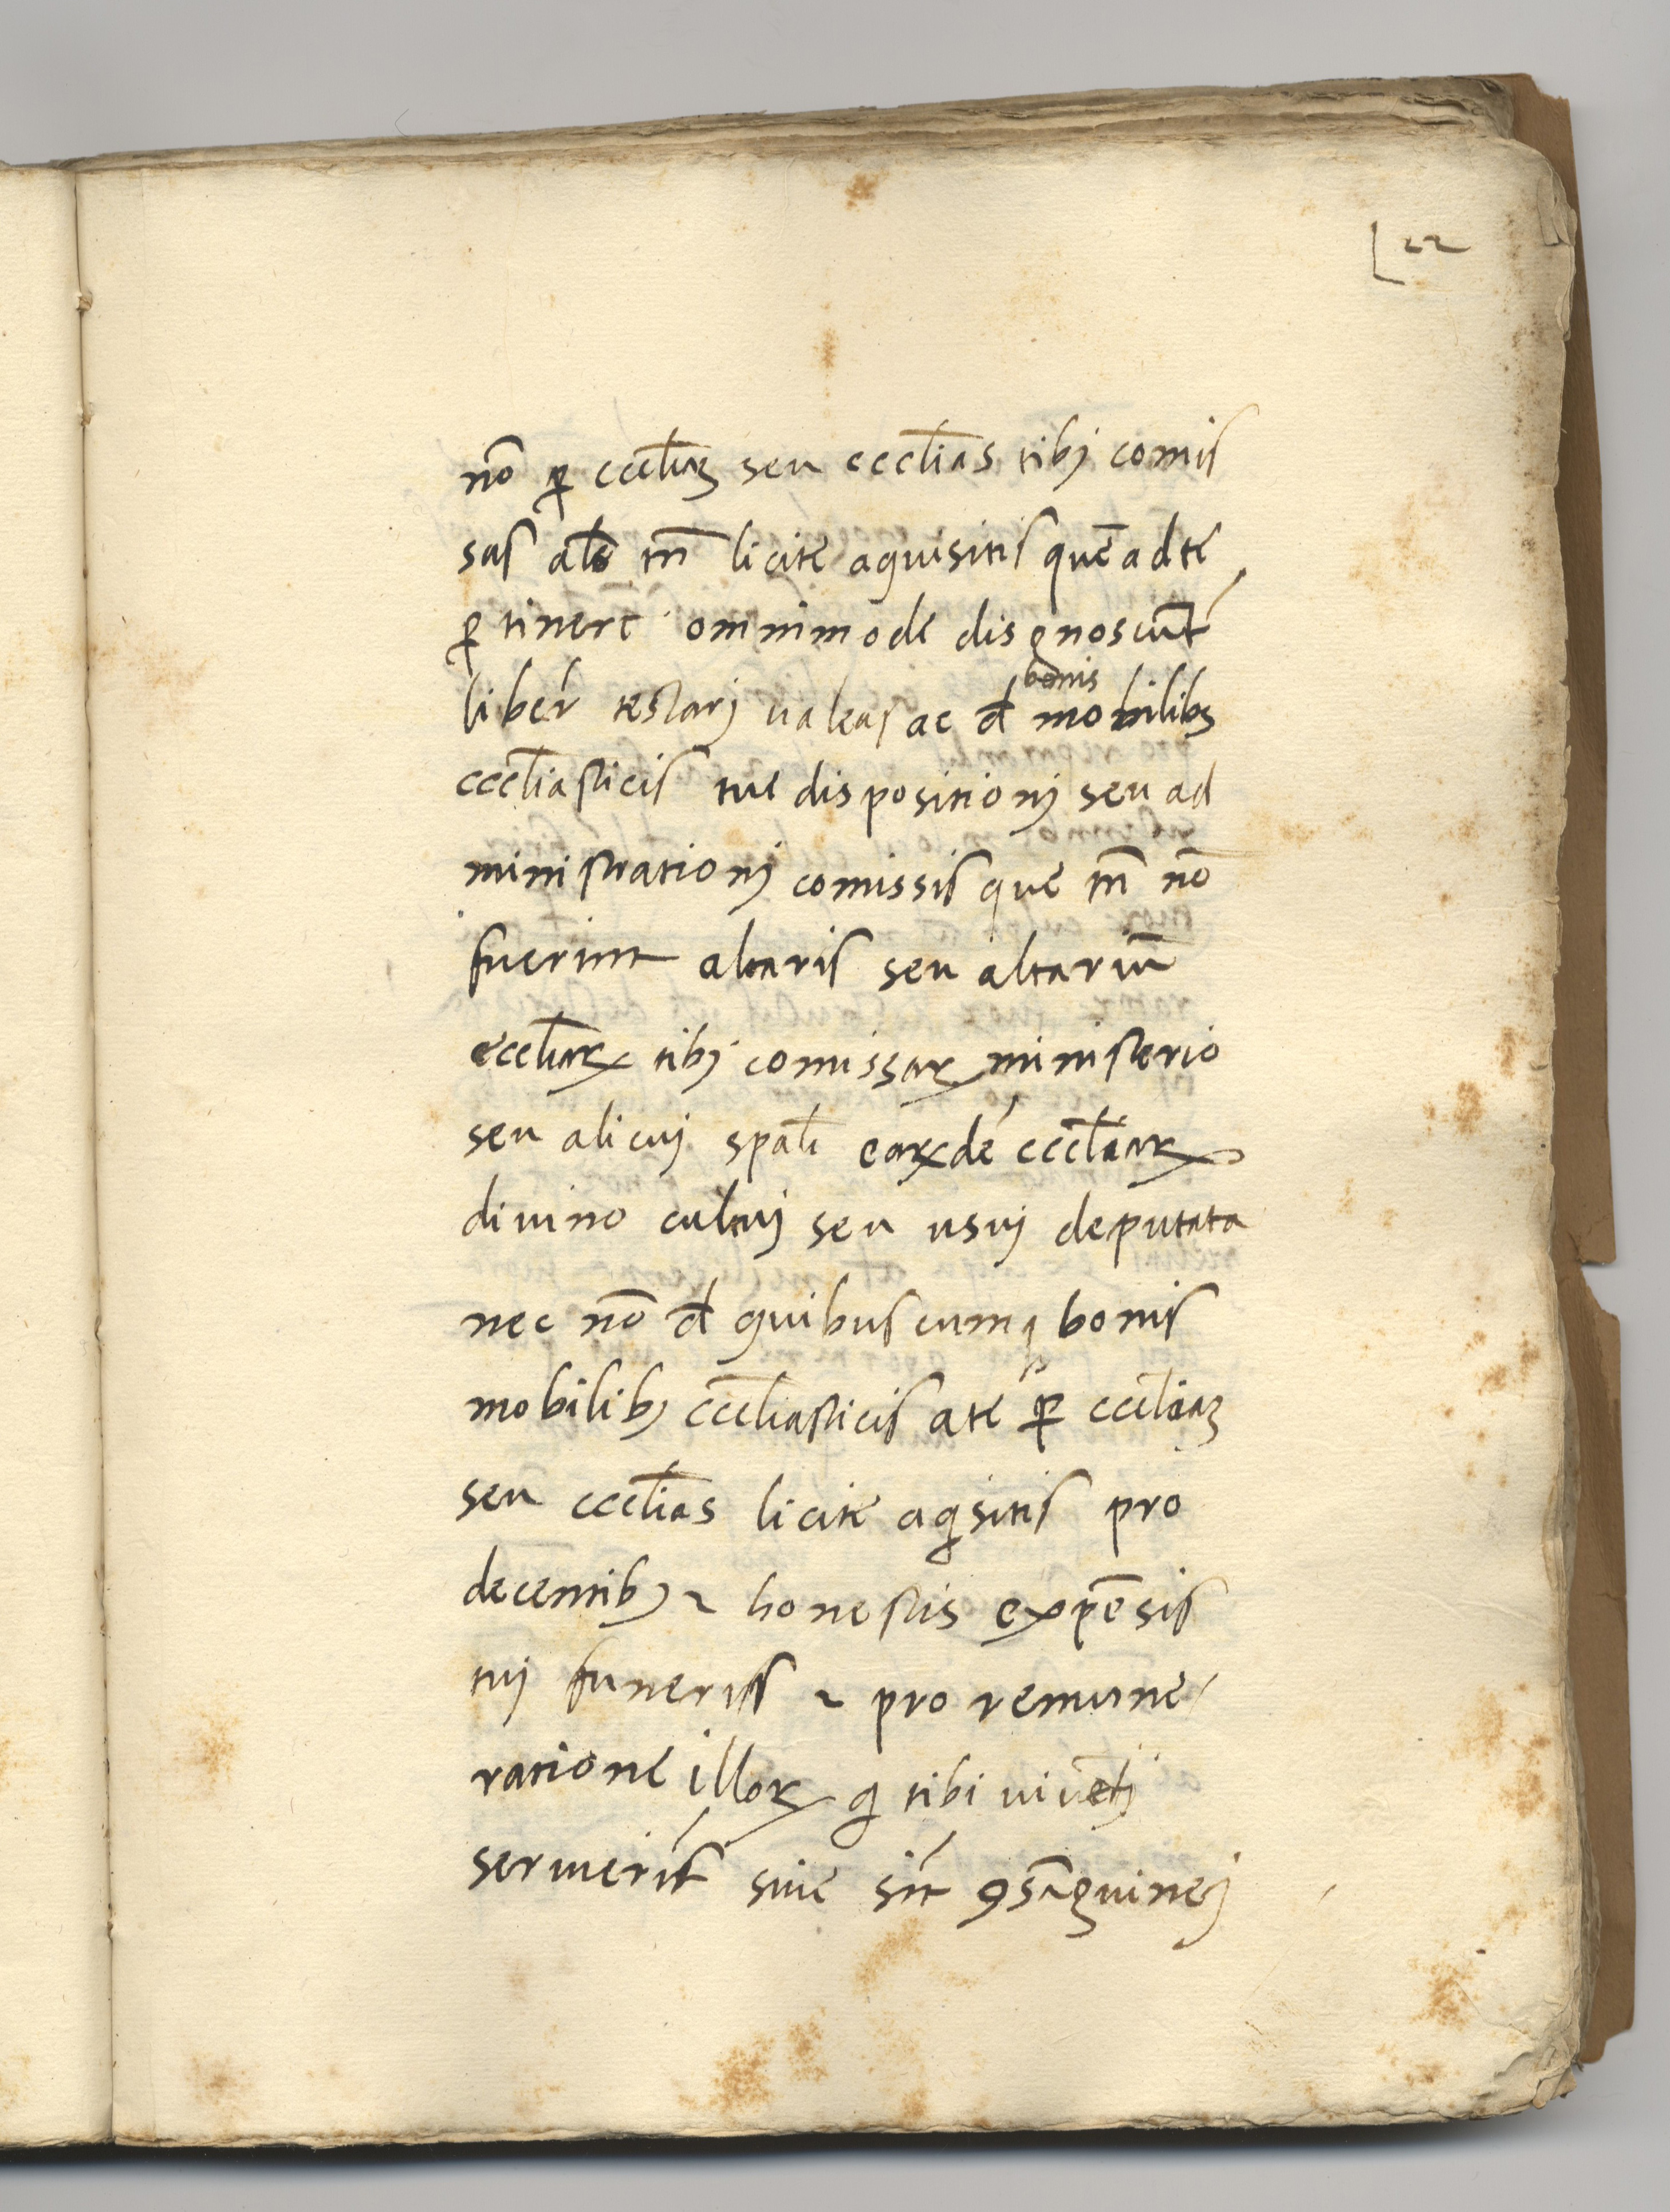 22
nō ꝑ eccl̄iaꝫ seu eccl̄ias tibj comis
sas als tn̄ licite aquisitis que ad te
ꝑtinere omnimode disgnoscūt᷑
liber̄ testarj ualeas ac d̄ bonis mobilibꝫ
eccl̄iasticis tue dispositionj seu ad
ministrationj comissis que tn̄ nō
fuerint altaris seu altariū
eccl̄iaꝝ tibj comissaꝝ ministerio
seu alicuj sp̄ali eaꝝdē eccl̄iaꝝ
diuino cultuj seu usuj deputata
nec nō d̄ quibuscumqꝫ bonis
mobilibꝫ eccl̄iasticis a te ꝑ eccl̄iaꝫ
seu eccl̄ias licite aqsitis pro
decentibꝫ ⁊ honestis expēsis
tuj funeris ⁊ pro remune
ratione illoꝝ q tibi uiuētj
seruierīt siue sīt ꝯsāguinej